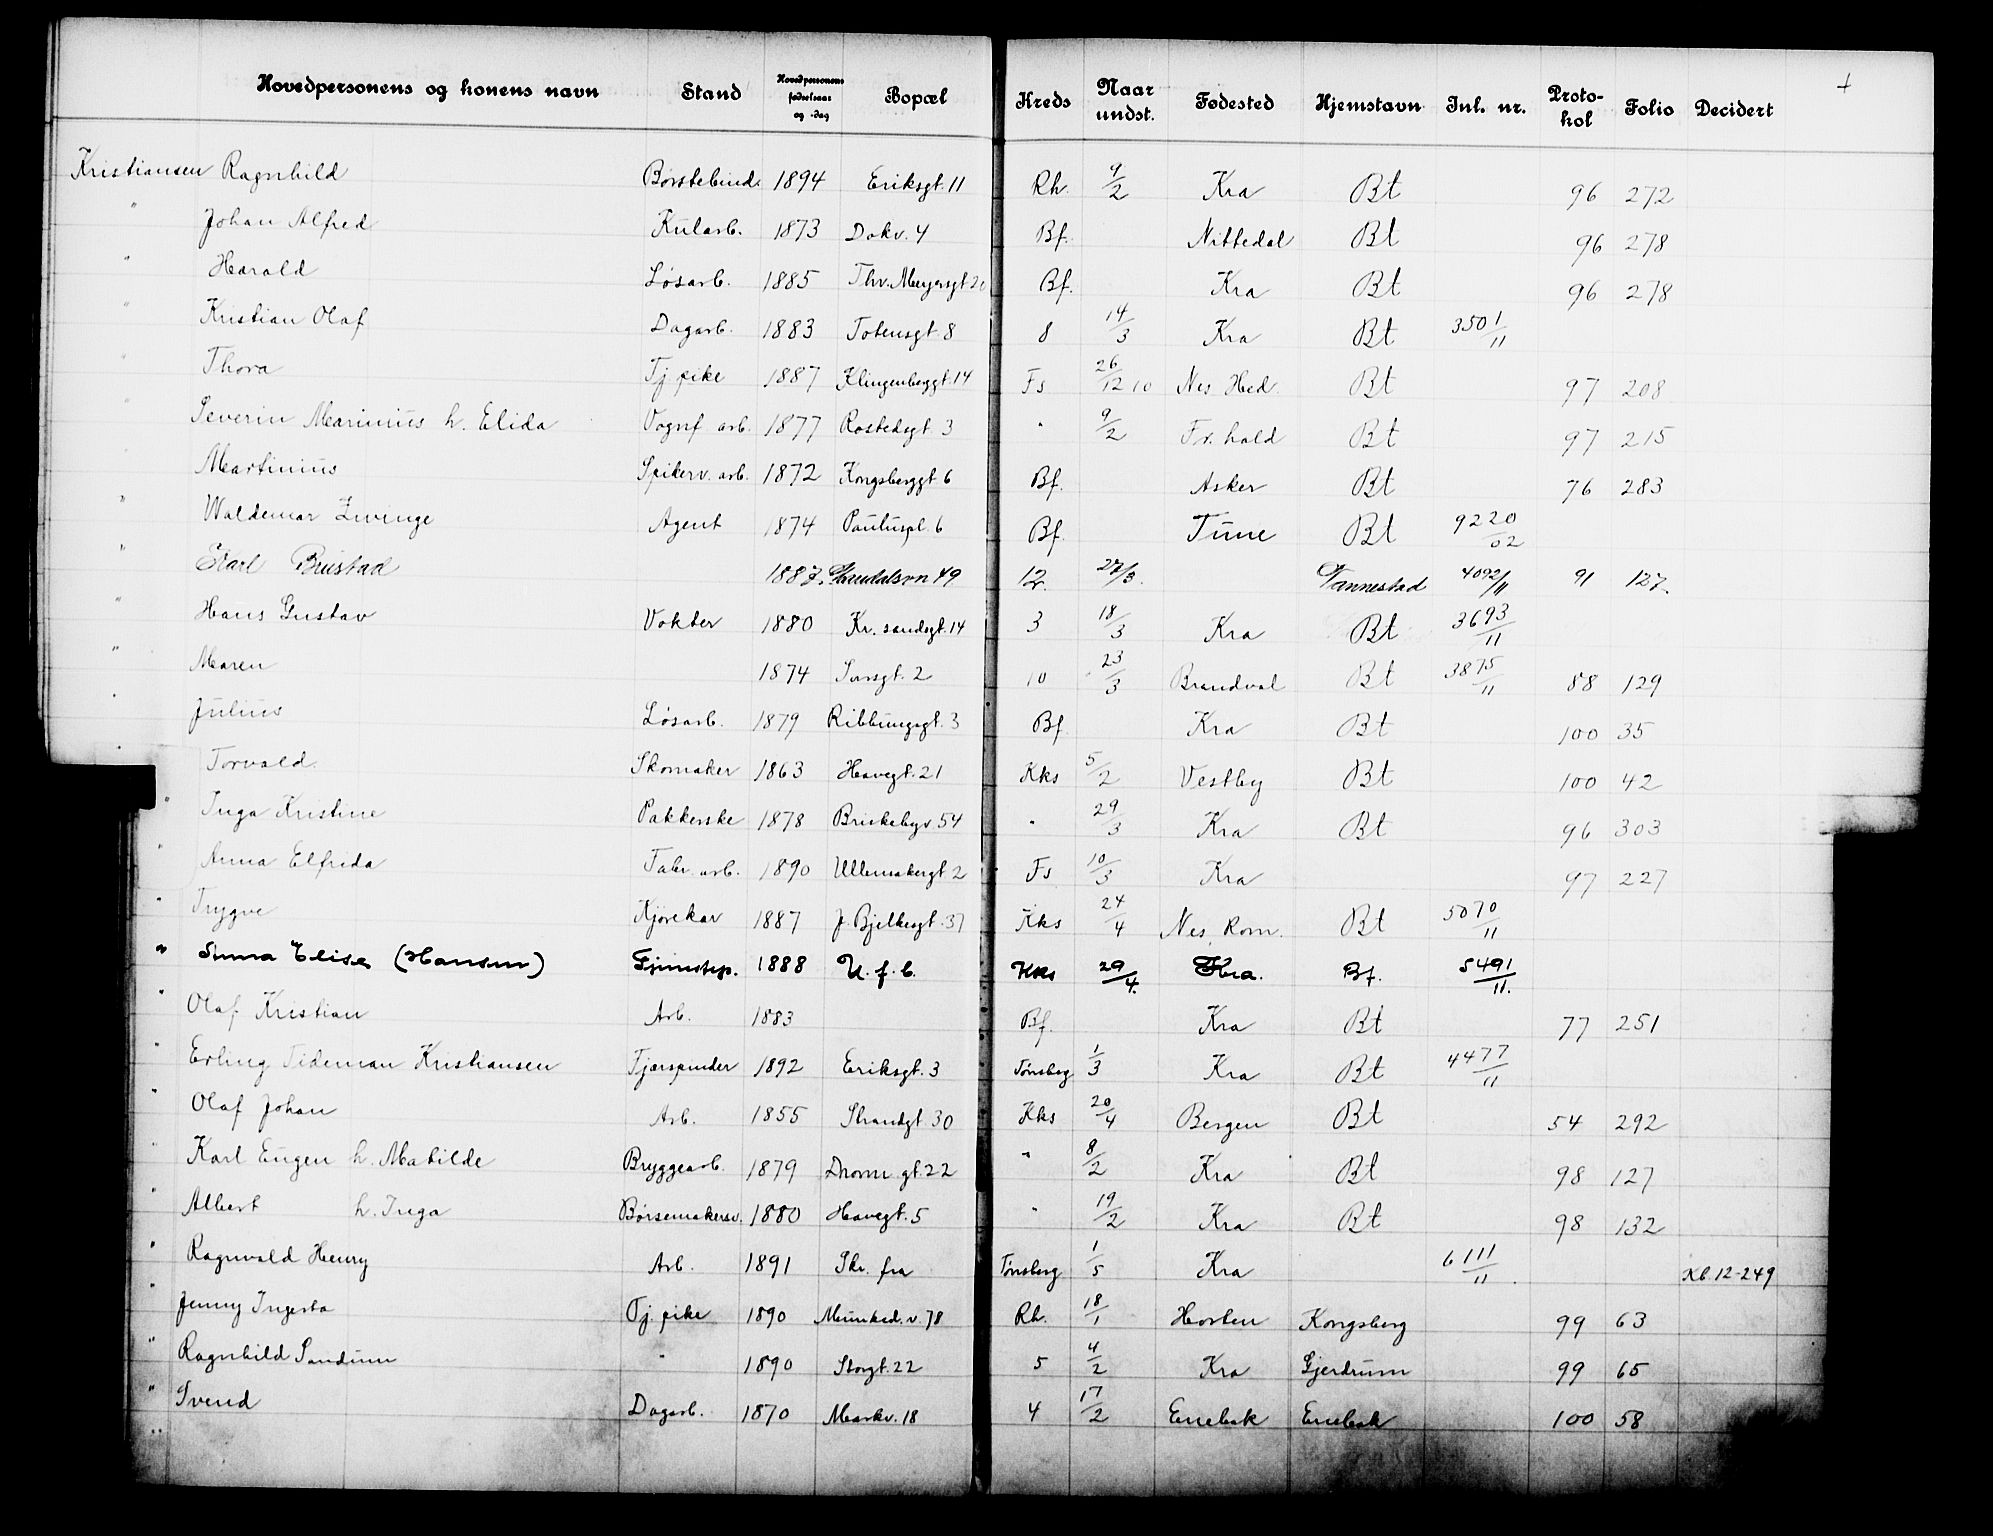 Hovedpersonens og konens navn Stand Hovedpersonens fødselsaar og -dag Bopæl Kreds Naar undst. Fødested Hjemstavn Inl. nr. Protokol Folio Decidert
Kristiansen Ragnhild Børstebind. 1894 Eriksgt. 11 Rh. 9/2 Kra Bt 96 272
" Johan Alfred Kularb. 1873 Dokv. 4 Bf. Nittedal Bt 96 278
" Harald Løsarb. 1885 Thv. Meyersgt 20 Bf. Kra Bt 96 278
" Kristian Olaf Dagarb. 1883 Totensgt. 8 8 14/3 Kra Bt 3501/11
" Thora Tj. pike 1887 Klingenberggt. 14 Fs 26/12 10 Nes Hed. Bt 97 208
" Severin Marinius h. Elida Vognf. arb. 1877 Rostedsgt. 3 " 9/2 Fr. hald Bt 97 215
Martinius Spikerv. arb. 1872 Kongsberggt. 6 Bf. Asker Bt 76 283
" Waldemar Zwinge Agent 1874 Pauluspl. 6 Bf. Tune Bt 9220/02
" Karl Brustad 1887. 49 12. 27/3. Vannestad 4092/11 91 127.
" Hans Gustav Vokter 1880 Kr. sandsgt. 14 3 18/3 Kra Bt 3693/11
" Maren 1874 Sarsgt. 2 10 23/3 Brandval Bt 3875/11 88 129
" Julius Løsarb. 1879 Ribbungsgt. 3 Bf. Kra Bt 100 35
" Torvald. Skomaker 1863 Havegt. 21 Kks 5/2 Vestby Bt 100 42
" Inga Kristine Pakkerske 1878 Briskebyv. 54 " 29/3 Kra Bt 96 303
" Anna Elfrida Fabr. arb. 1890 Ullemakergt 2 Fs 10/3 Kra 97 227
" Trygve Kjørekar 1887 J. Bjelkesgt. 37 Kks 24/4 Nes, Rom. Bt 5070/11
" Anna Elise (Hansen) Tjenstep. 1888 U. f. b. Kks 29/4. Kra. Bf. 5491/11.
" Olaf Kristian Arb. 1883 Bf. Kra Bt 77 251
" Erling Tideman Kristiansen Fjærspinder 1892 Eriksgt. 3 Tønsberg 1/3 Kra Bt 4477/11
" Olaf Johan Arb. 1855 Strandgt. 30 Kks 20/4 Bergen Bt 54 292
" Karl Eugen h. Matilde Bryggearb. 1879 Dronn. gt. 22 " 8/2 Kra Bt 98 127
" Albert h. Inga Børsemakersv. 1880 Havegt. 5 " 19/2 Kra Bt 98 132
" Ragnvald Henry Arb. 1891 Skr. fra Tønsberg 1/5 Kra 6111/11. Kb. 12-249
" Jenny Ingerta Tj. pike 1890 Munked. v. 78 Rh. 18/1 Horten Kongsberg 99 63
" Ragnhild Sandum " 1890 Storgt. 22 5 4/2 Kra Gjerdrum 99 65
" Svend Dagarb. 1870 Markv. 18 4 17/2 Enebak Enebak 100 58
"